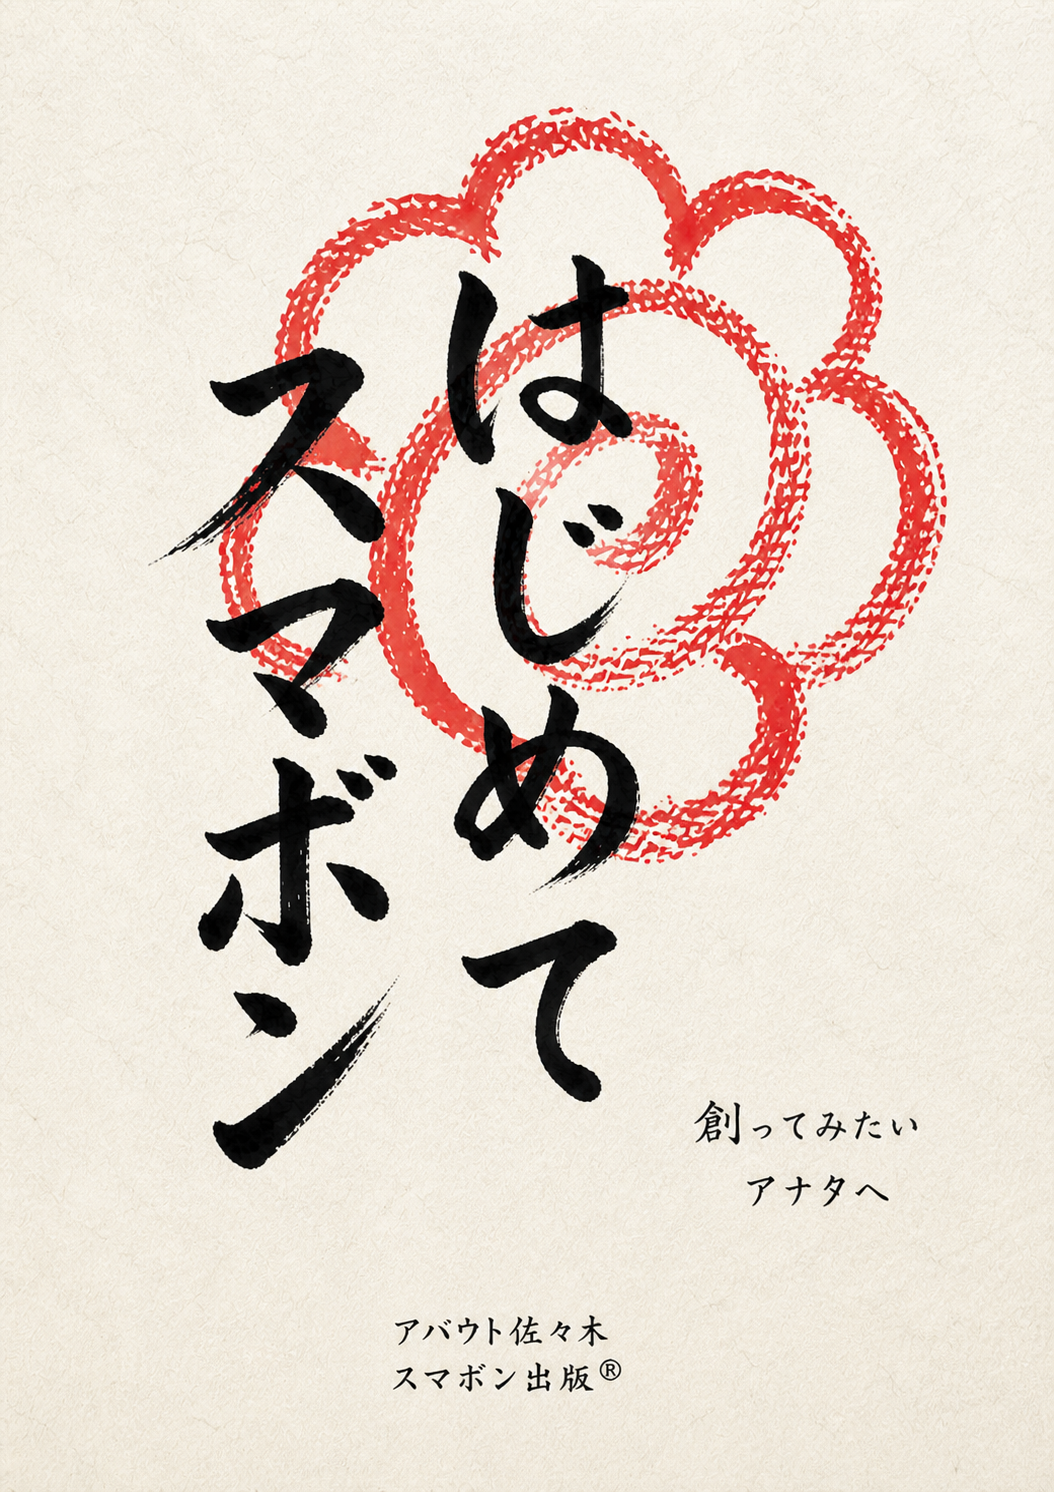 はじめて
スマボン
創ってみたい
アナタへ
アバウト佐々木
スマボン出版®